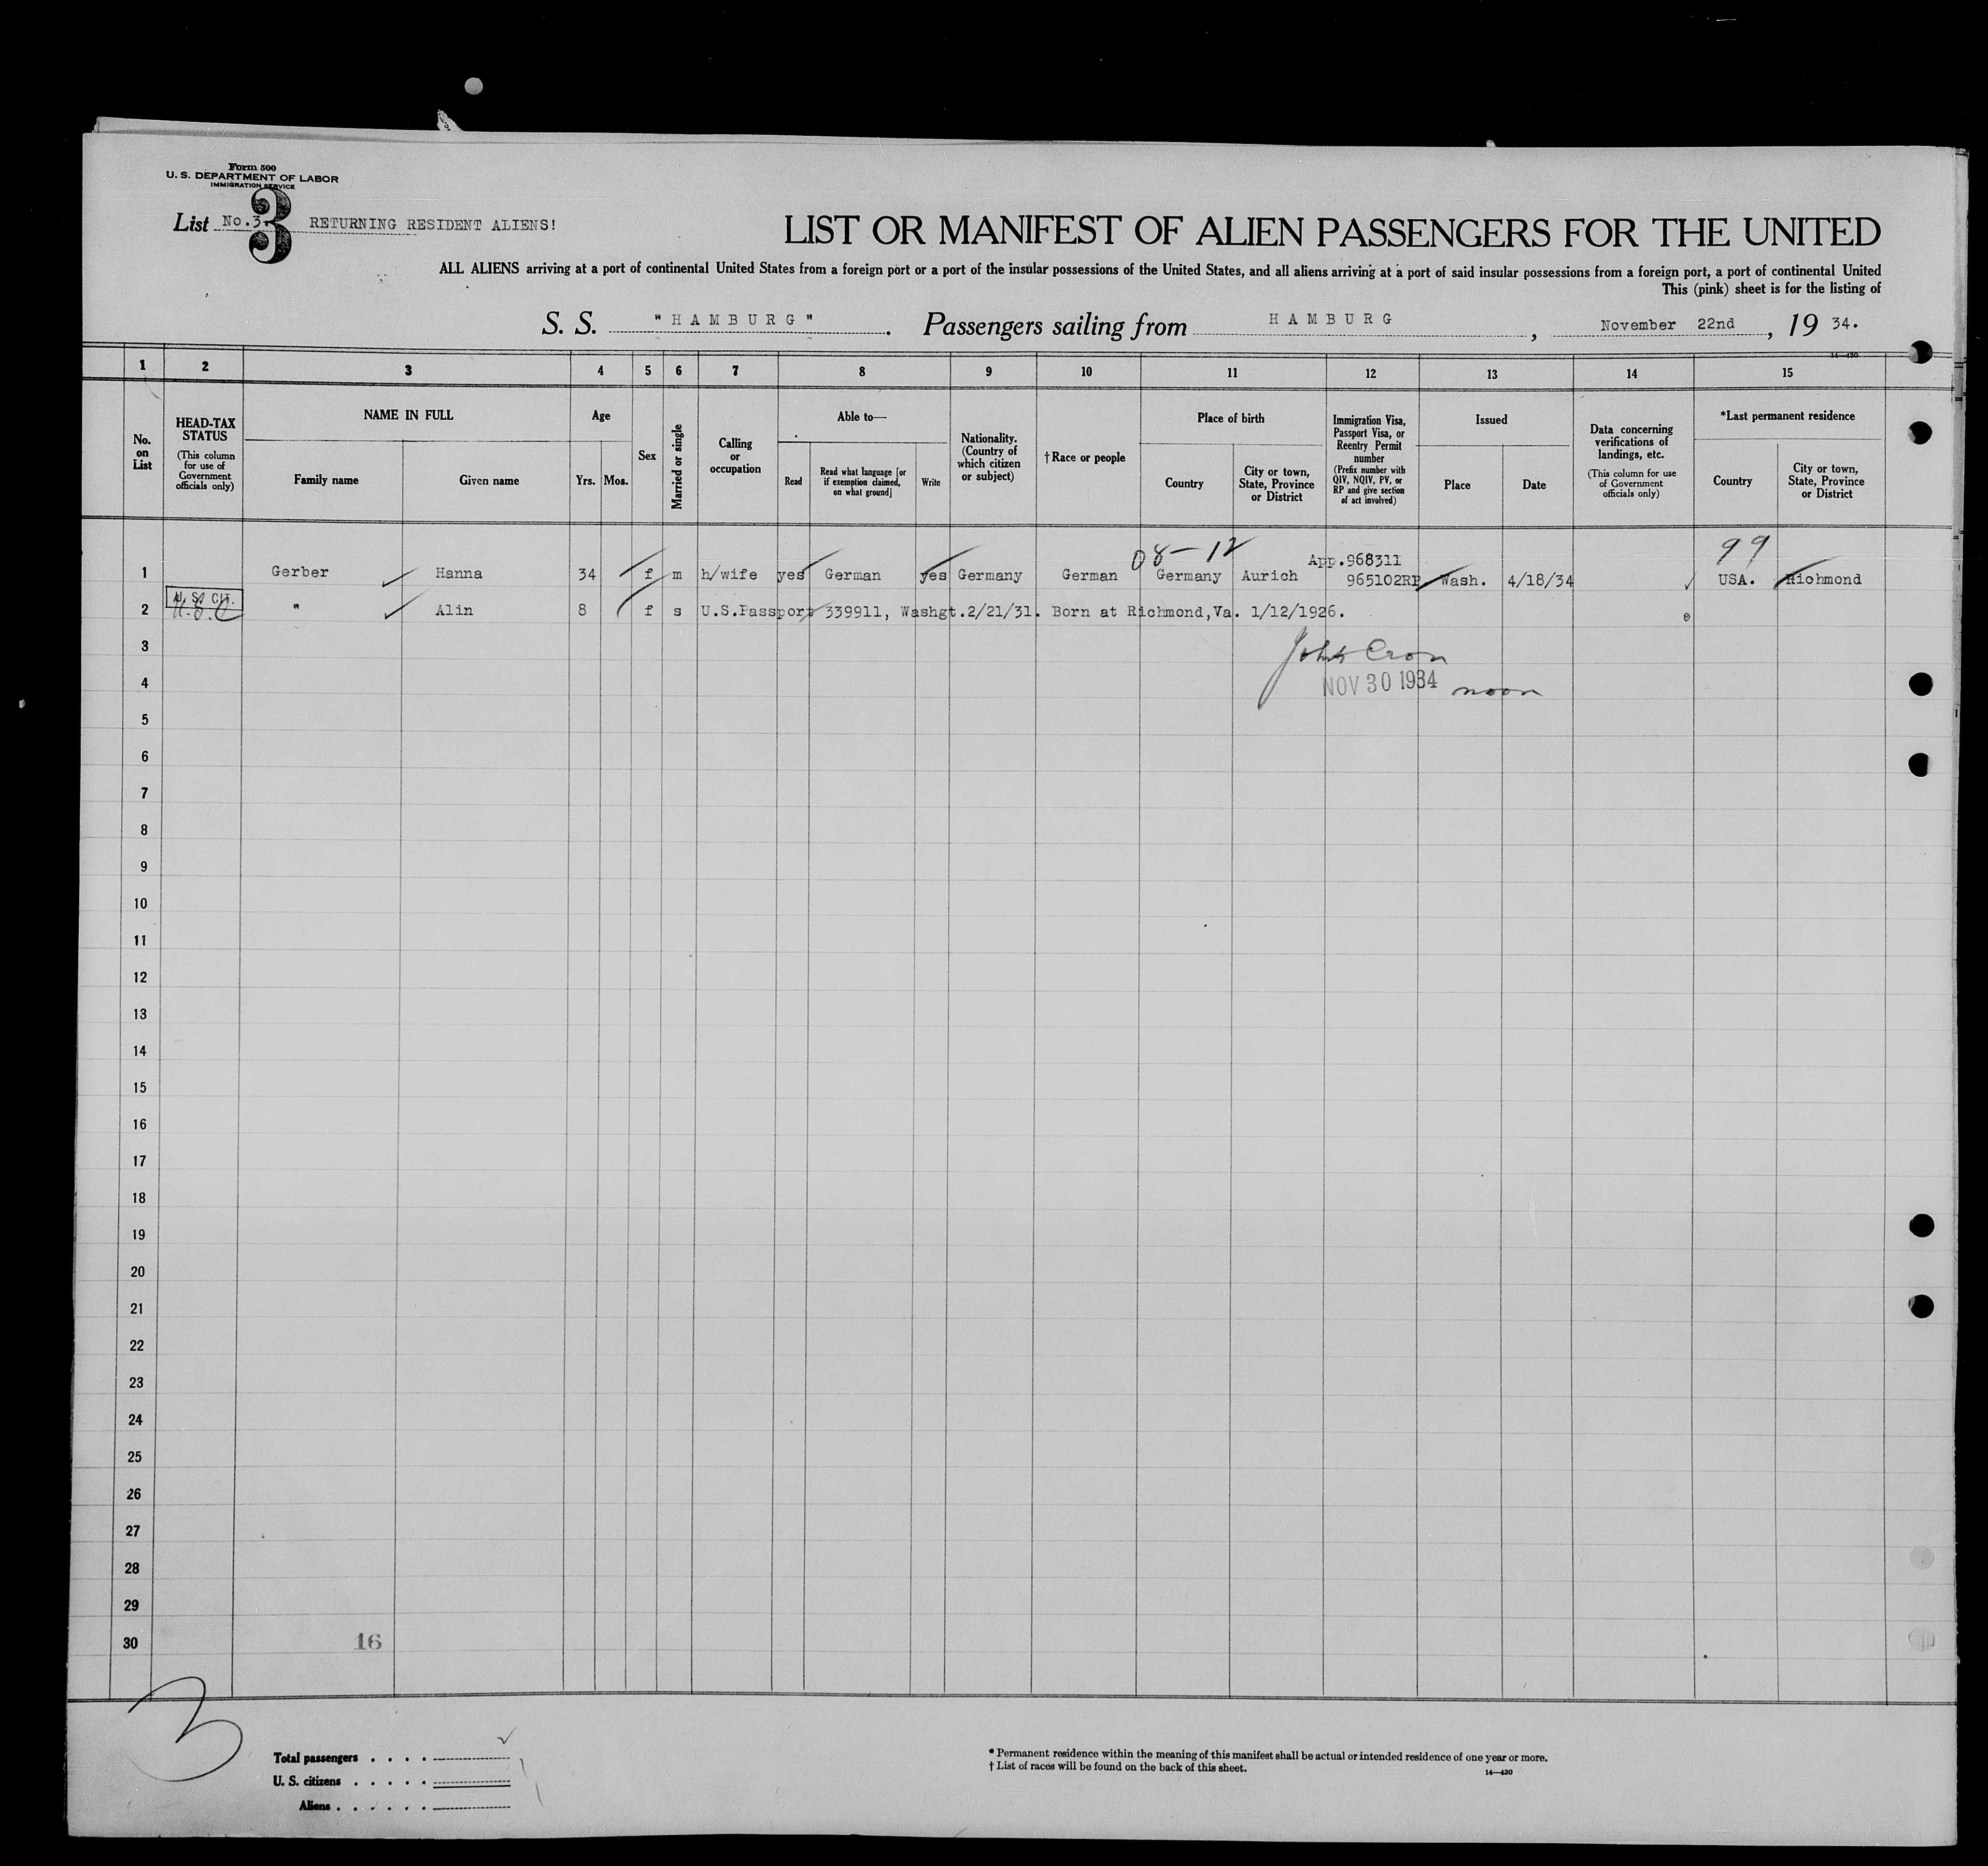 Form 500
U. S. DEPARTMENT OF LABOR
IMMIGRATION SERVICE
3
List No.3. RETURNING RESIDENT ALIENS!
LIST OR MANIFEST OF ALIEN PASSENGERS FOR THE UNITED
ALL ALIENS arriving at a port of continental United States from a foreign port or a port of the insular possessions of the United States, and all aliens arriving at a port of said insular possessions from a foreign port, a port of continental United
This (pink) sheet is for the listing of
S. S. "HAMBURG". Passengers sailing from HAMBURG, November 22nd, 19 34.
14—430
1 2 3 4 5 6 7 8 9 10 11 12 13 14 15
No. on List
HEAD-TAX STATUS
(This column for use of Government officials only)
NAME IN FULL
Family name Given name
Age
Yrs. Mos.
Sex
Married or single
Calling or occupation
Able to—
Read
Read what language [or if exemption claimed, on what ground]
Write
Nationality. (Country of which citizen or subject)
†Race or people
Place of birth
Country
City or town, State, Province or District
Immigration Visa, Passport Visa, or Reentry Permit number
(Prefix number with QIV, NQIV, PV, or RP and give section of act involved)
Issued
Place Date
Data concerning verifications of landings, etc.
(This column for use of Government officials only)
*Last permanent residence
Country
City or town, State, Province or District
08-12 99
App.968311
1 Gerber Hanna 34 f m h/wife yes German yes Germany German Germany Aurich 965102RP Wash. 4/18/34 USA. Richmond
U. S. CIT.
U.S.C
2 " Alin 8 f s U.S.Passport 339911, Washgt.2/21/31. Born at Richmond,Va. 1/12/1926.
3
John Cron
4
NOV 30 1934 noon
5
6
7
8
9
10
11
12
13
14
15
16
17
18
19
20
21
22
23
24
25
26
27
28
29
30 16
3
Total passengers
U. S. citizens
Aliens
* Permanent residence within the meaning of this manifest shall be actual or intended residence of one year or more.
† List of races will be found on the back of this sheet.
14—430